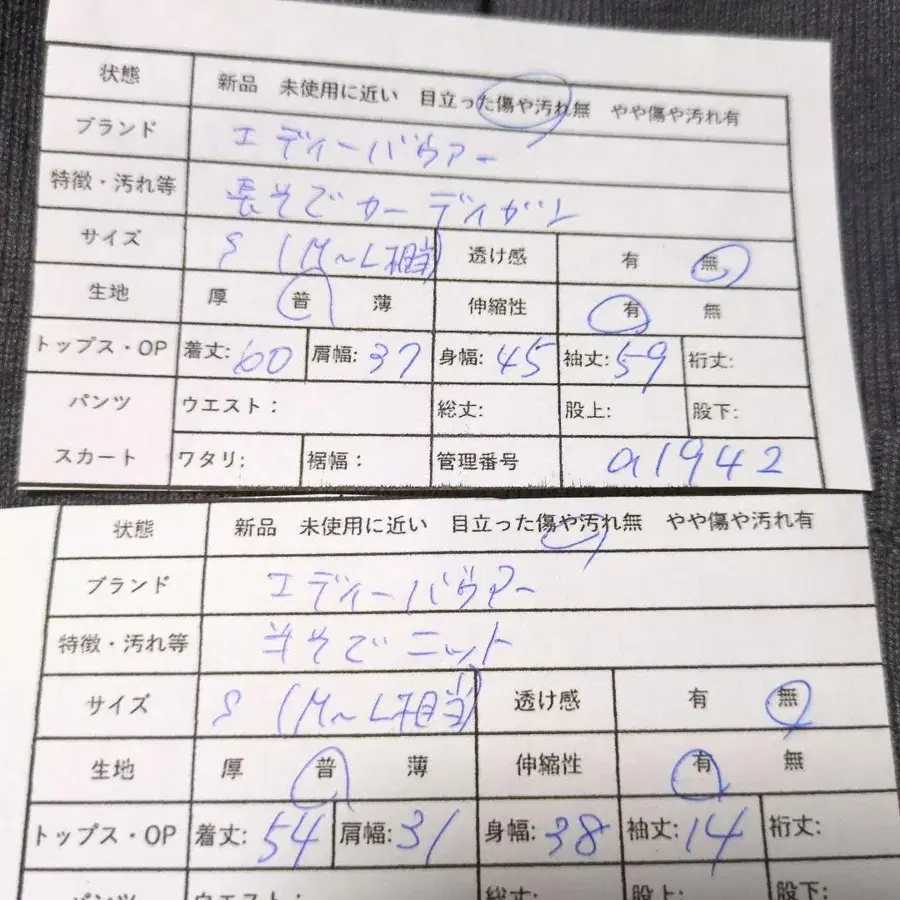 状態 新品 未使用に近い 目立った傷や汚れ無 やや傷や汚れ有
ブランド エディーバウアー
特徴・汚れ等 長そでカーディガン
サイズ S (M~L相当) 透け感 有 無
生地 厚 普 薄 伸縮性 有 無
トップス・OP 着丈:60 肩幅:37 身幅:45 袖丈:59 裄丈:
パンツ ウエスト: 総丈: 股上: 股下:
スカート ワタリ: 裾幅: 管理番号 a1942
状態 新品 未使用に近い 目立った傷や汚れ無 やや傷や汚れ有
ブランド エディーバウアー
特徴・汚れ等 半そでニット
サイズ S (M~L相当) 透け感 有 無
生地 厚 普 薄 伸縮性 有 無
トップス・OP 着丈:54 肩幅:31 身幅:38 袖丈:14 裄丈:
パンツ ウエスト: 総丈: 股上: 股下: